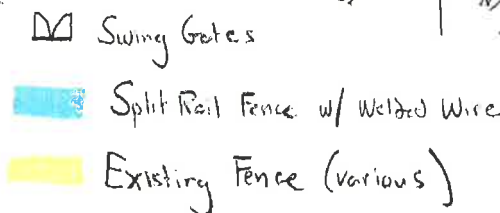 Swing Gates
Split Rail Fence w/ Welded Wire
Existing Fence (various)